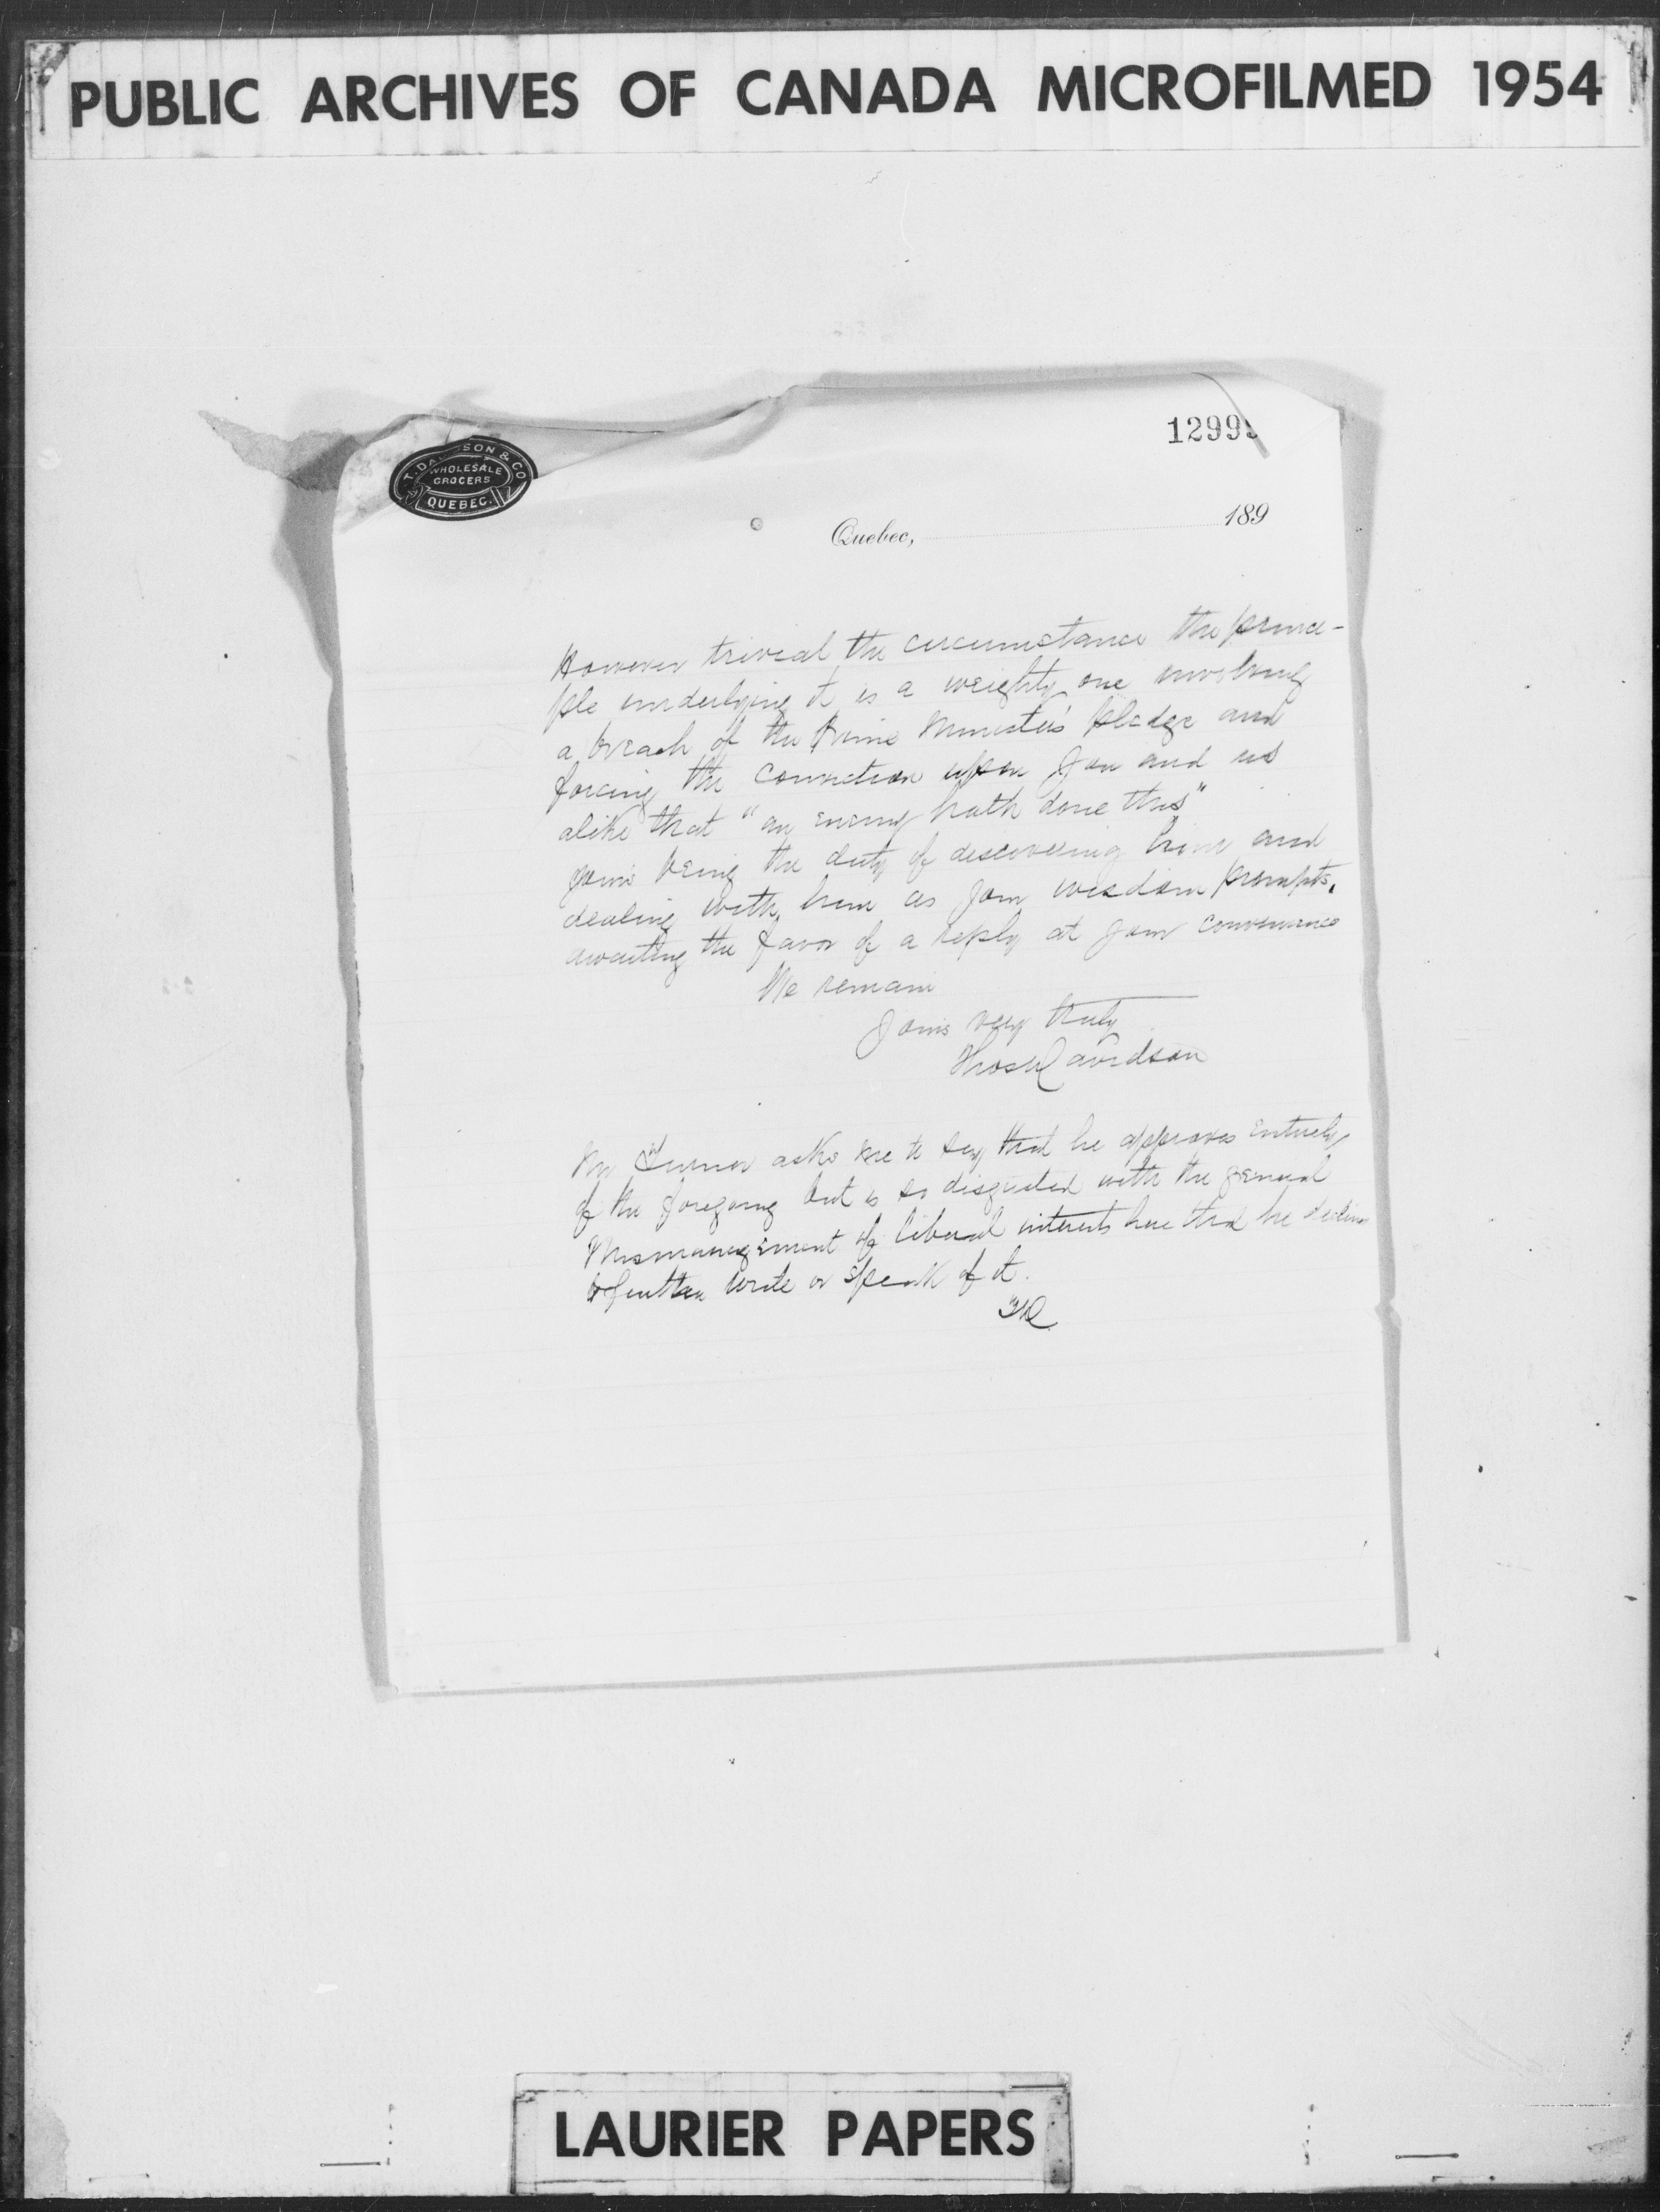 PUBLIC ARCHIVES OF CANADA MICROFILMED 1954
1299
T. DA SON & CO
WHOLESALE
GROCERS
QUEBEC.
Quebec, 189
However trivial the circumstance the princi-
ple underlying it is a weighty one involving
a breach of the Prime Minister's pledge and
forcing the conviction upon you and us
alike that "an enemy hath done this"
yours being the duty of discovering him and
dealing with him as your wisdom prompts.
awaiting the favor of a reply at your convenience
We remain
Yours very truly
Thos Davidson
Mr Turner asks me to say that he approves entirely
of the foregoing but is so disgusted with the general
mismanagement of liberal interests here that he declines
to further write or speak of it.
TD
LAURIER PAPERS